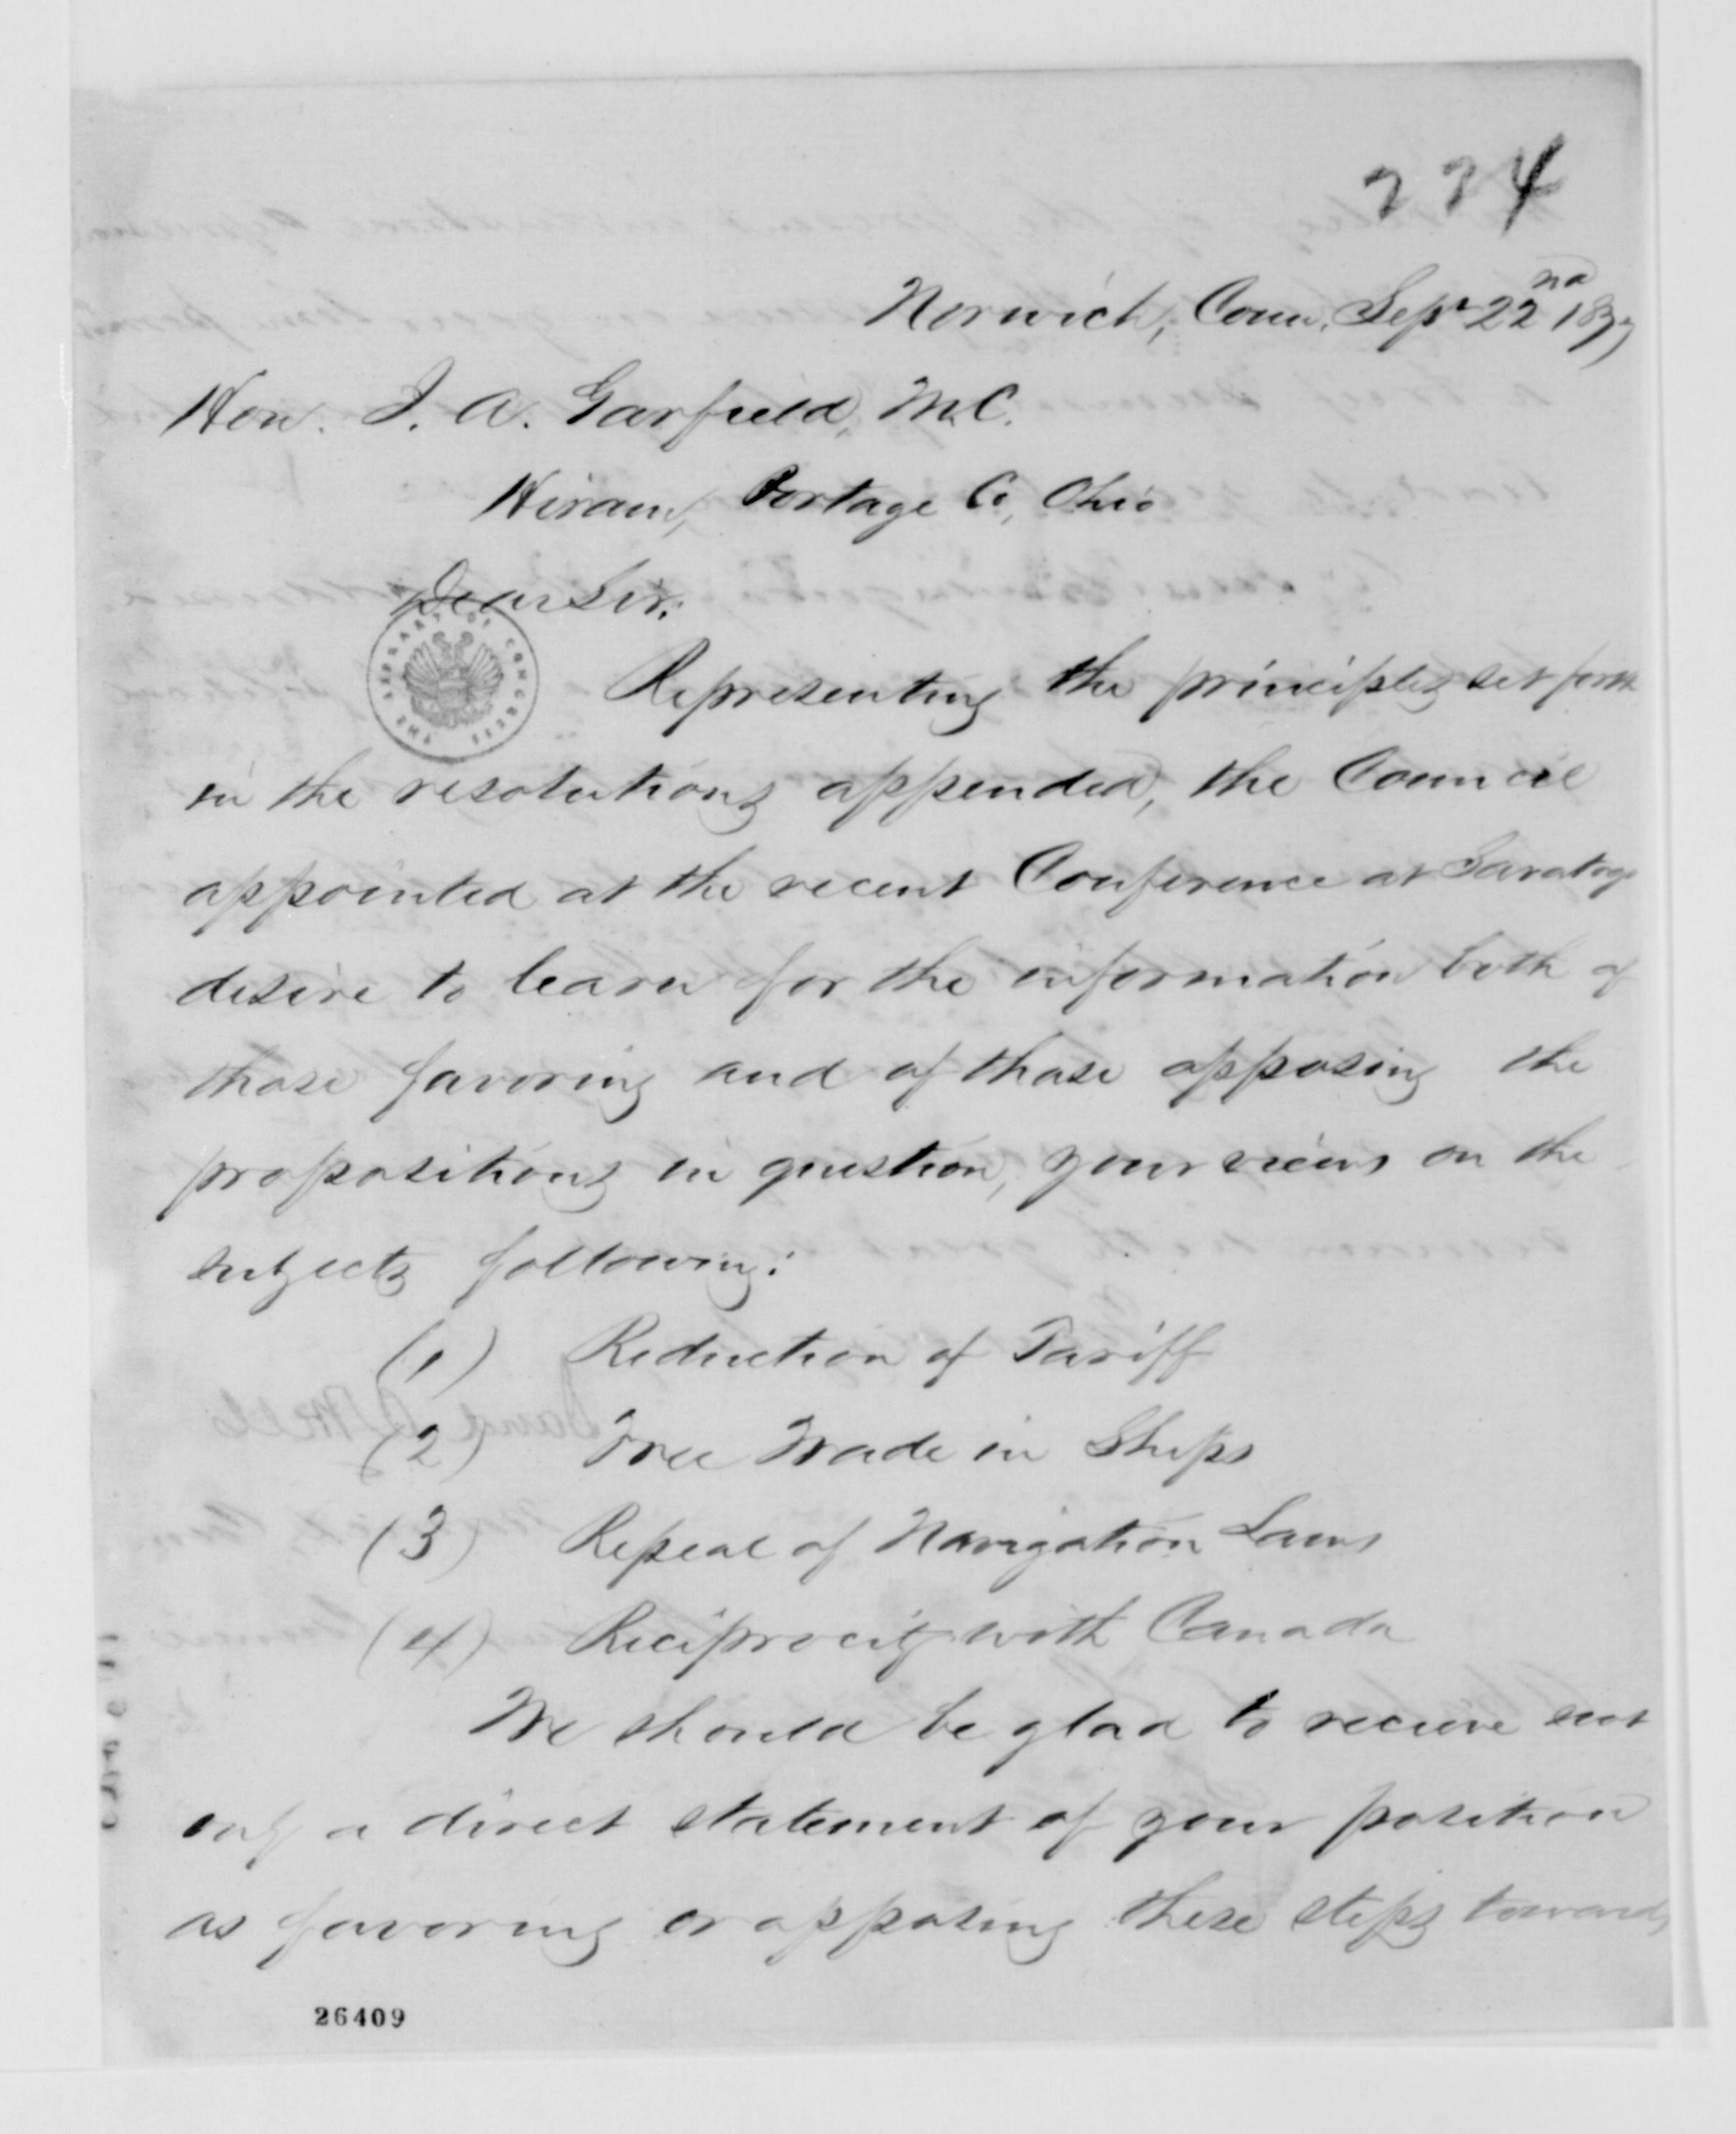 224
Norwich, Conn. Sept 22nd 1877
Hon. J. A. Garfield, M.C.
Hiram, Portage Co, Ohio
Dear Sir:
THE LIBRARY OF CONGRESS
Representing the principles set forth
in the resolutions appended, the Council
appointed at the recent Conference at Saratoga
desire to learn for the information both of
those favoring and of those opposing the
propositions in question, your views on the
subjects following:
(1) Reduction of Tariff
(2) Free Trade in Ships
(3) Repeal of Navigation Laws
(4) Reciprocity with Canada
We should be glad to receive not
only a direct statement of your position
as favoring or opposing these steps towards
26409